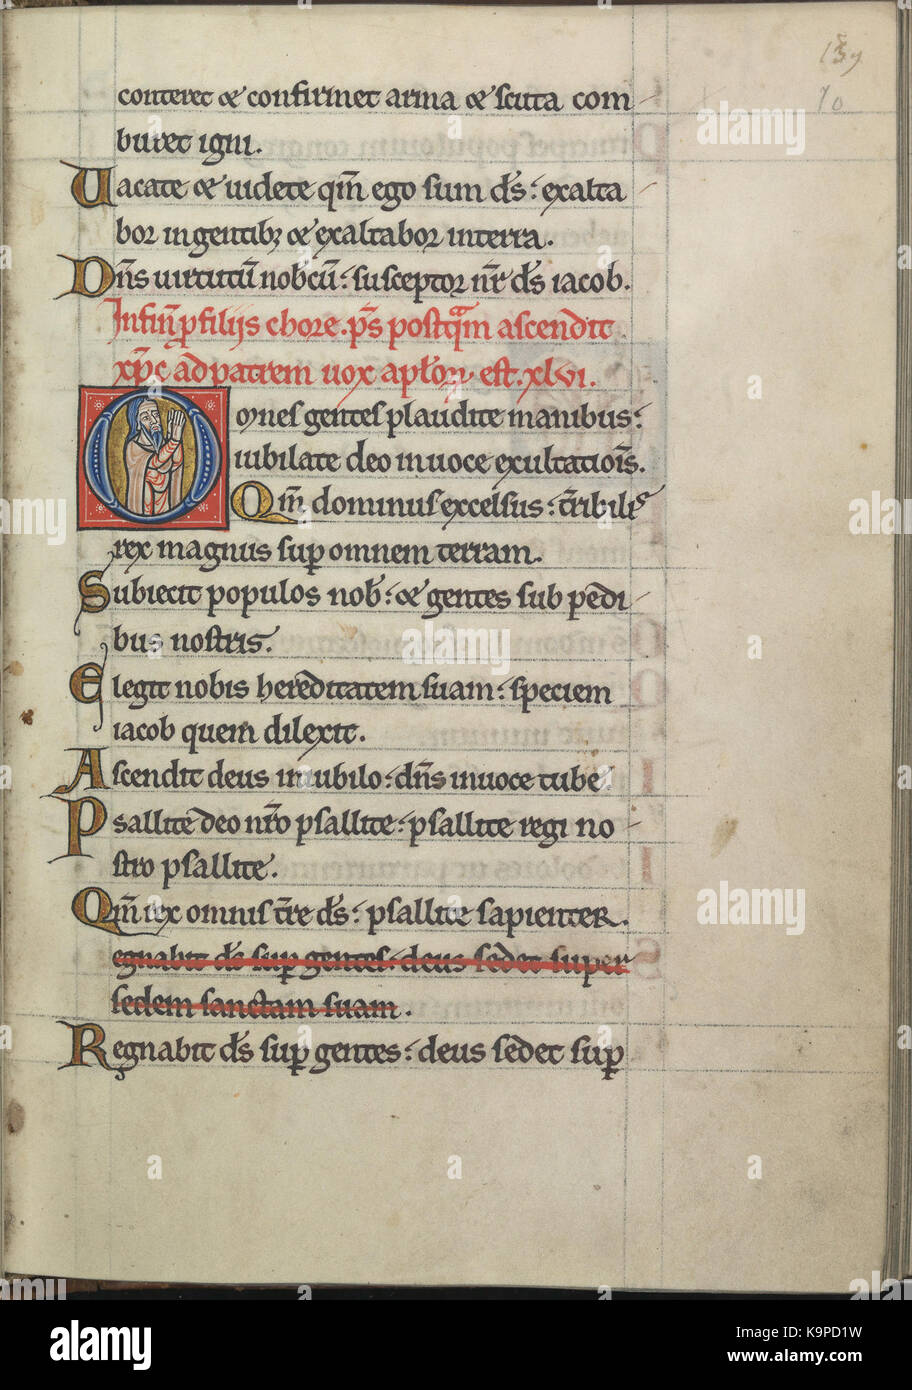 conteret & confirmet arma & scuta com
buret igni.
Vacate & uidete qm̄ ego sum ds̄: exalta
bor in gentibȝ & exaltabor in terra.
Dn̄s uirtutū nobcū: susceptor nr̄ ds̄ iacob.
In finē p filiis chore. ps̄ postqam ascendit
xp̄c ad patrem uox aplōꝝ est. xlvi.
Omnes gentes plaudite manibus:
iubilate deo in uoce exultationis̄.
Qm̄ dominus excelsus: t̄ribilis
rex magnus sup̄ omnem terram.
Subiecit populos nob̄: & gentes sub pedi
bus nostris.
Elegit nobis hereditatem suam: speciem
iacob quem dilexit.
Ascendit deus in iubilo: dn̄s in uoce tube.
Psallite deo nr̄o psallite: psallite regi no
stro psallite.
Qm̄ rex omnis t̄re ds̄: psallite sapienter.
egnabit ds̄ sup̄ gentes: deus sedet super
sedem sanctam suam.
Regnabit ds̄ sup̄ gentes: deus sedet sup̄
alamy
Image ID: K9PD1W
www.alamy.com